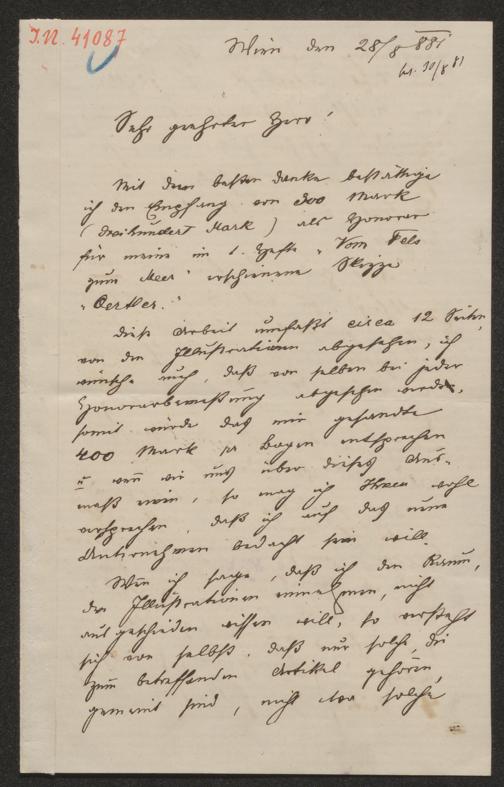 I.N. 41087
Wien den 28/8 881
Sehr geehrter Herr!
Mit dem besten Danke bestättige
ich den Empfang von 300 Mark
(Dreihundert Mark) als Honorar
für meine im 1. Hefte „Vom Fels
zum Meer" erschienene Skizze
„Oertler."
Diese Arbeit umfaßt circa 12 Seiten,
von den Illustrationen abgesehen, ich
wünsche auch, daß von selben bei jeder
Honorarbemeßung abgesehen werde,
somit würde das mir gesandte
400 Mark pr Bogen entsprechen
u wenn wir uns über dieses Aus-
maß einen, so mag ich Ihnen wohl
versprechen, daß ich auf das neue
Unternehmen bedacht sein will.
Wenn ich sage, daß ich den Raum,
den Illustrationen einnehmen, nicht
ausgeschieden wissen will, so versteht
sich von selbst, daß nur solche, die
zum betreffenden Artikel gehören,
gemeint sind, nicht etwa solche